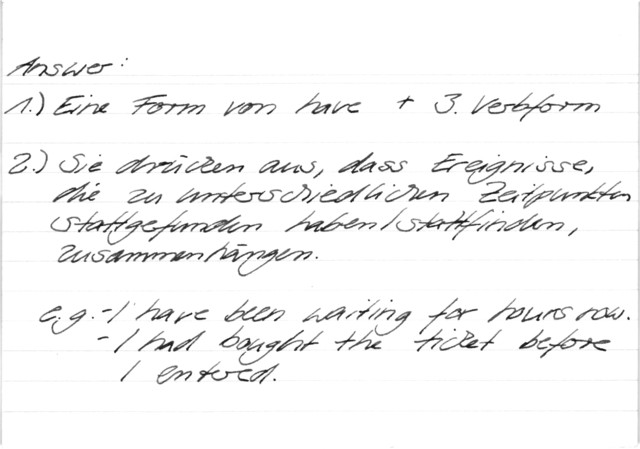 Answer:
1.) Eine Form von have + 3. Verbform
2.) Sie drücken aus, dass Ereignisse,
die zu unterschiedlichen Zeitpunkten
stattgefunden haben/stattfinden,
zusammenhängen.
e.g. - I have been waiting for hours now.
- I had bought the ticket before
I entered.